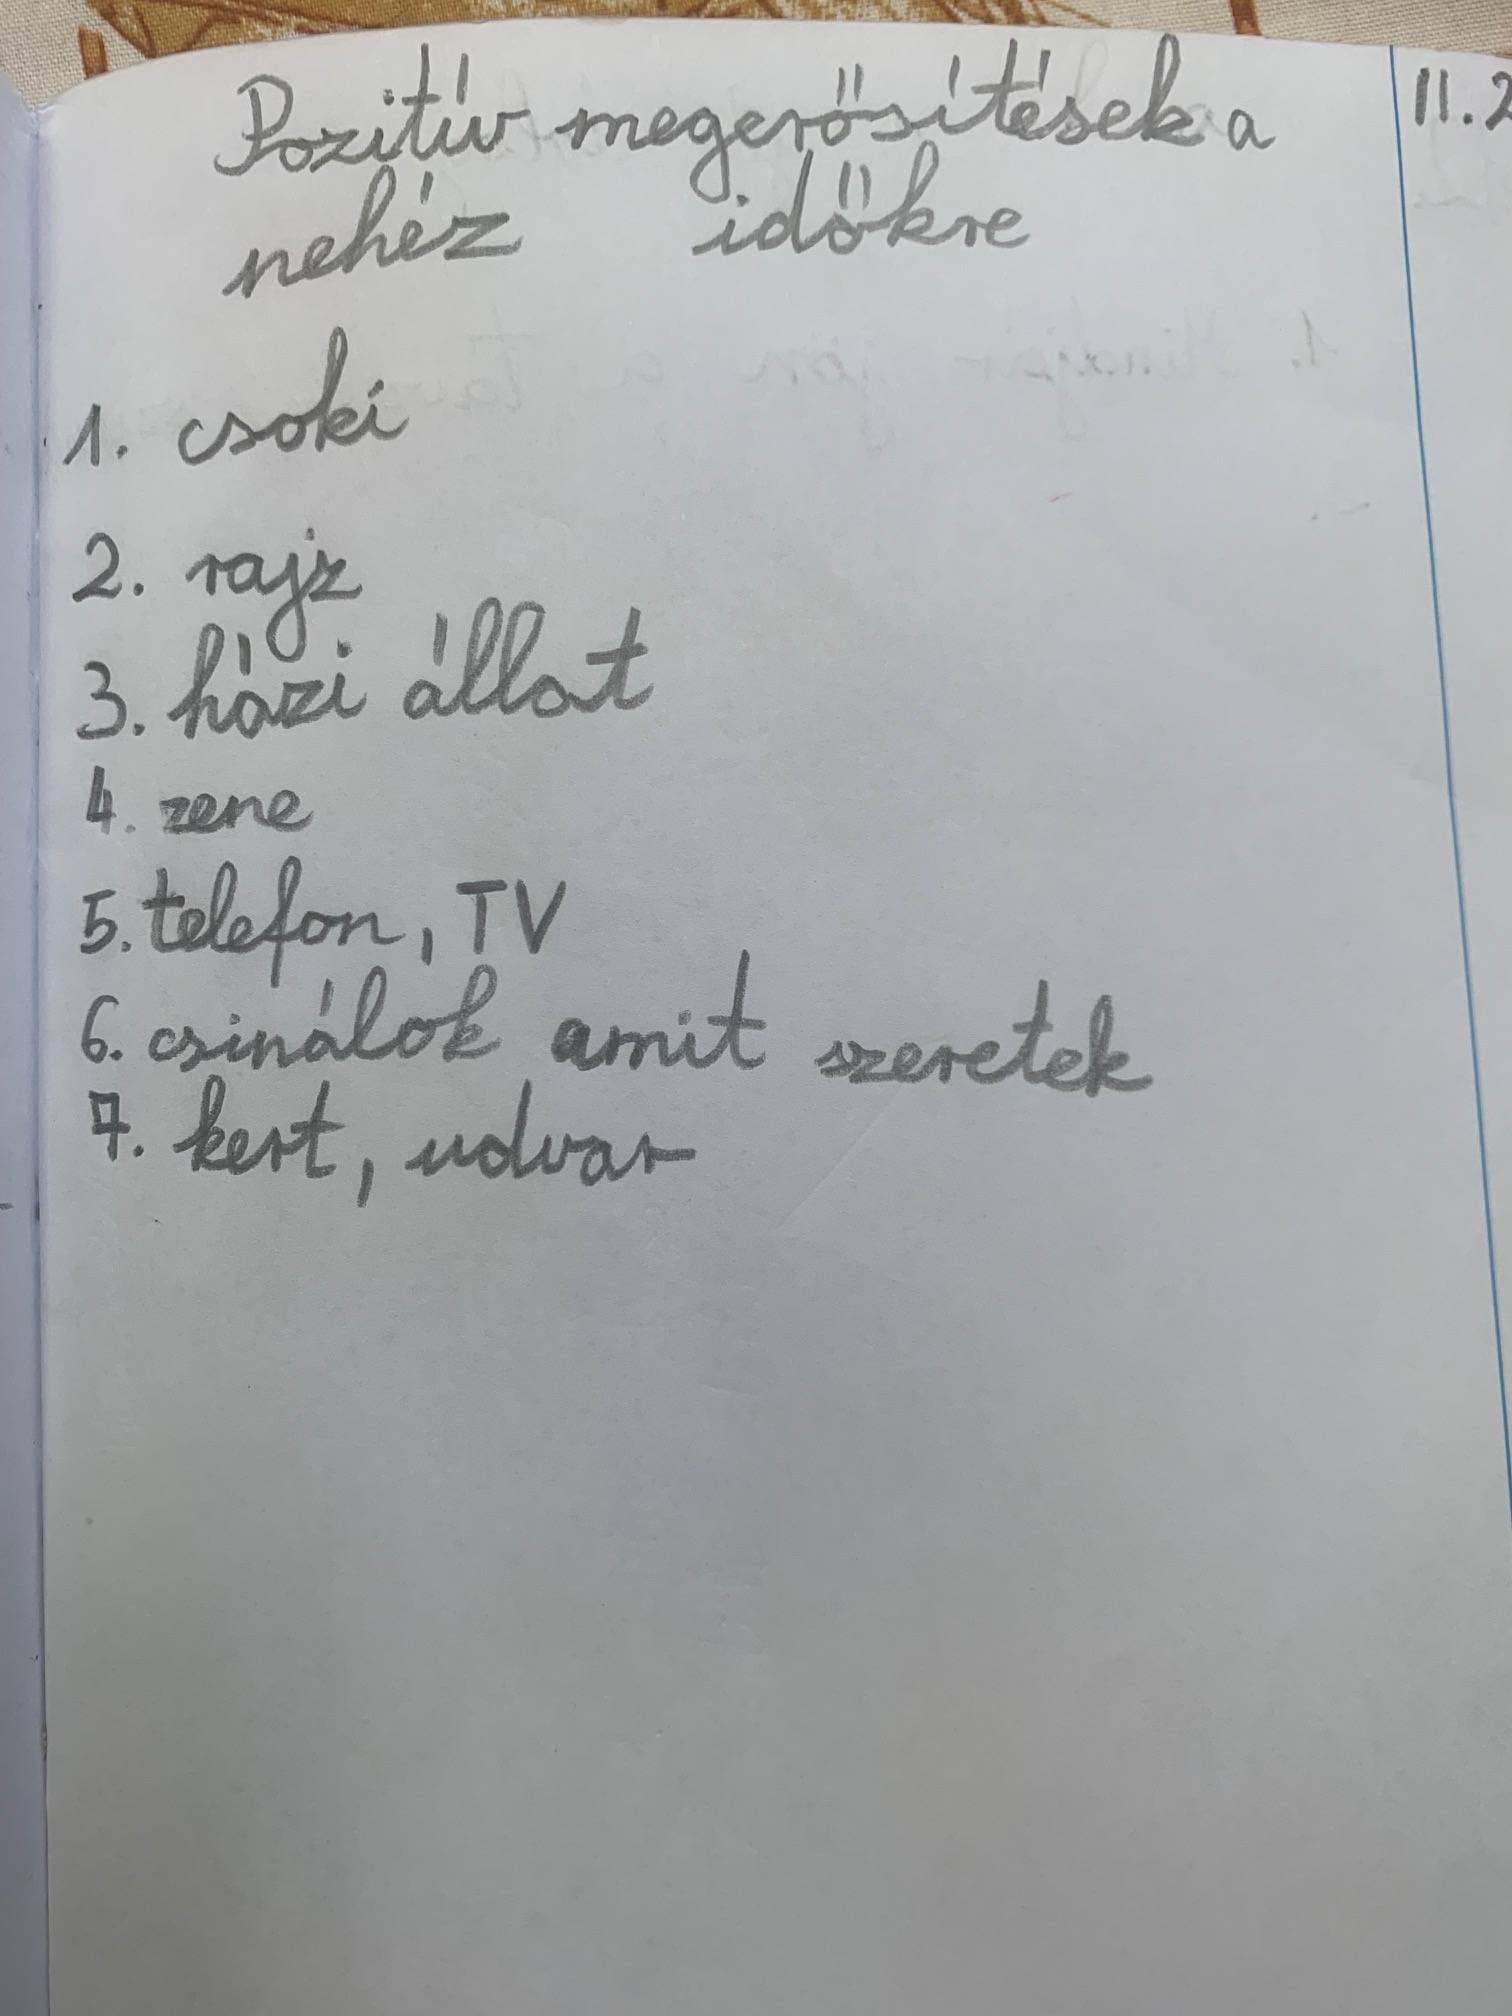 Pozitív megerősítések a
nehéz idökre
11.2
1. csoki
2. rajz
3. házi állat
4. zene
5. telefon, TV
6. csinálok amit szeretek
7. kert, udvar